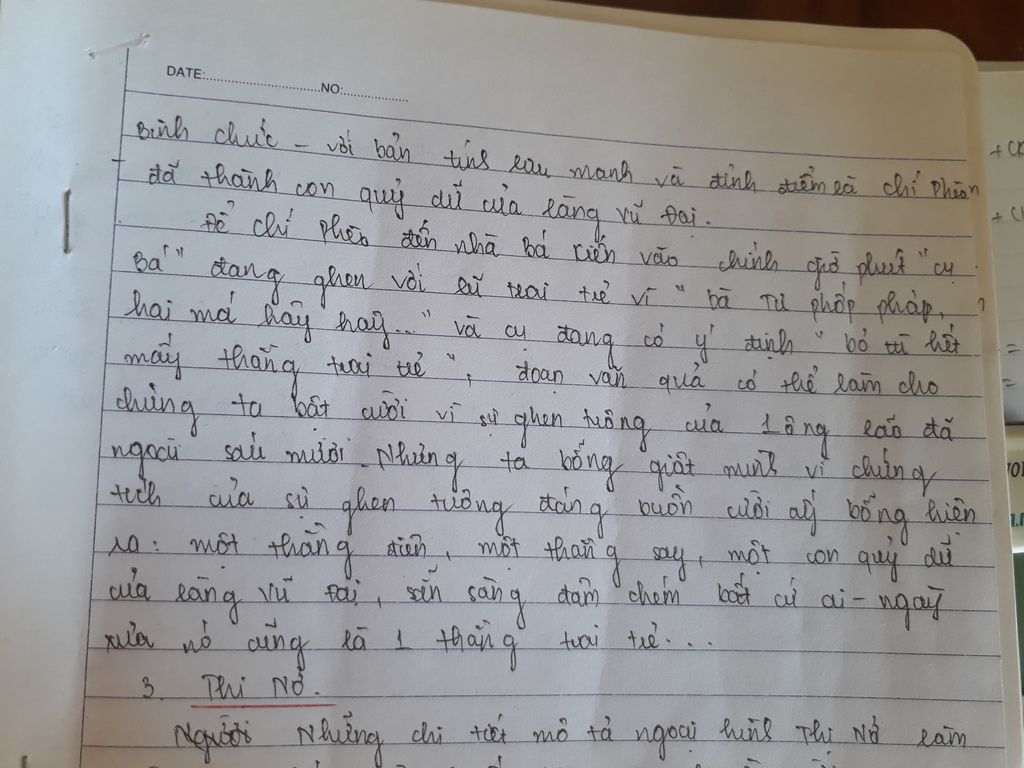 DATE:..............................NO:.................
Binh chức – với bản tính lưu manh và đỉnh điểm là chí Phèo
đã thành con quỷ dữ của làng vũ Đại.
Để chí Phèo đến nhà bá Kiến vào chính giờ phút "cụ
Bá" đang ghen với lũ trai trẻ vì "bà Tư phốp pháp,
hai má hây hây..." và cụ đang có ý định "bỏ tù hết
mấy thằng trai trẻ", đoạn văn quả có thể làm cho
chúng ta bật cười vì sự ghen tuông của 1 ông lão đã
ngoài sáu mươi. Nhưng ta bỗng giật mình vì chứng
tích của sự ghen tuông đáng buồn cười ấy bỗng hiện
ra: một thằng điên, một thằng say, một con quỷ dữ
của làng vũ Đại, sẵn sàng đâm chém bất cứ ai – ngày
xưa nó cũng là 1 thằng trai trẻ...
3. Thị Nở.
Người Những chi tiết mô tả ngoại hình Thị Nở làm